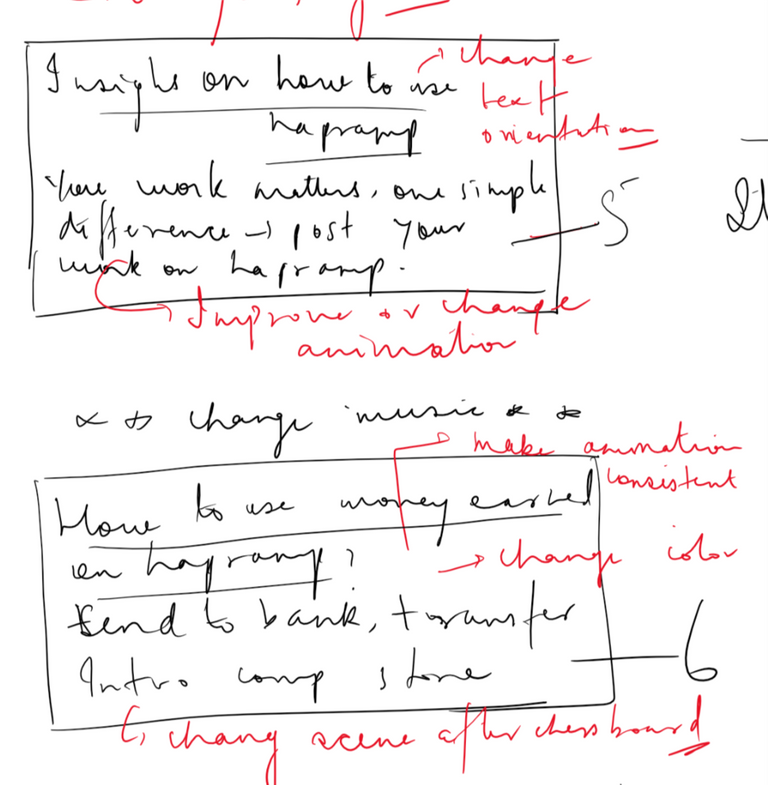 Insighs on how to use
hapramp
→ change
text
orientation
Your work matters, one simple
difference → post your
work on hapramp.
5
→ Improve or change
animation
change music * *
→ make animation
consistent
How to use money earned
on hapramp?
→ change color
send to bank, transfer
Intro comp store
6
↳ chang scene after chessboard